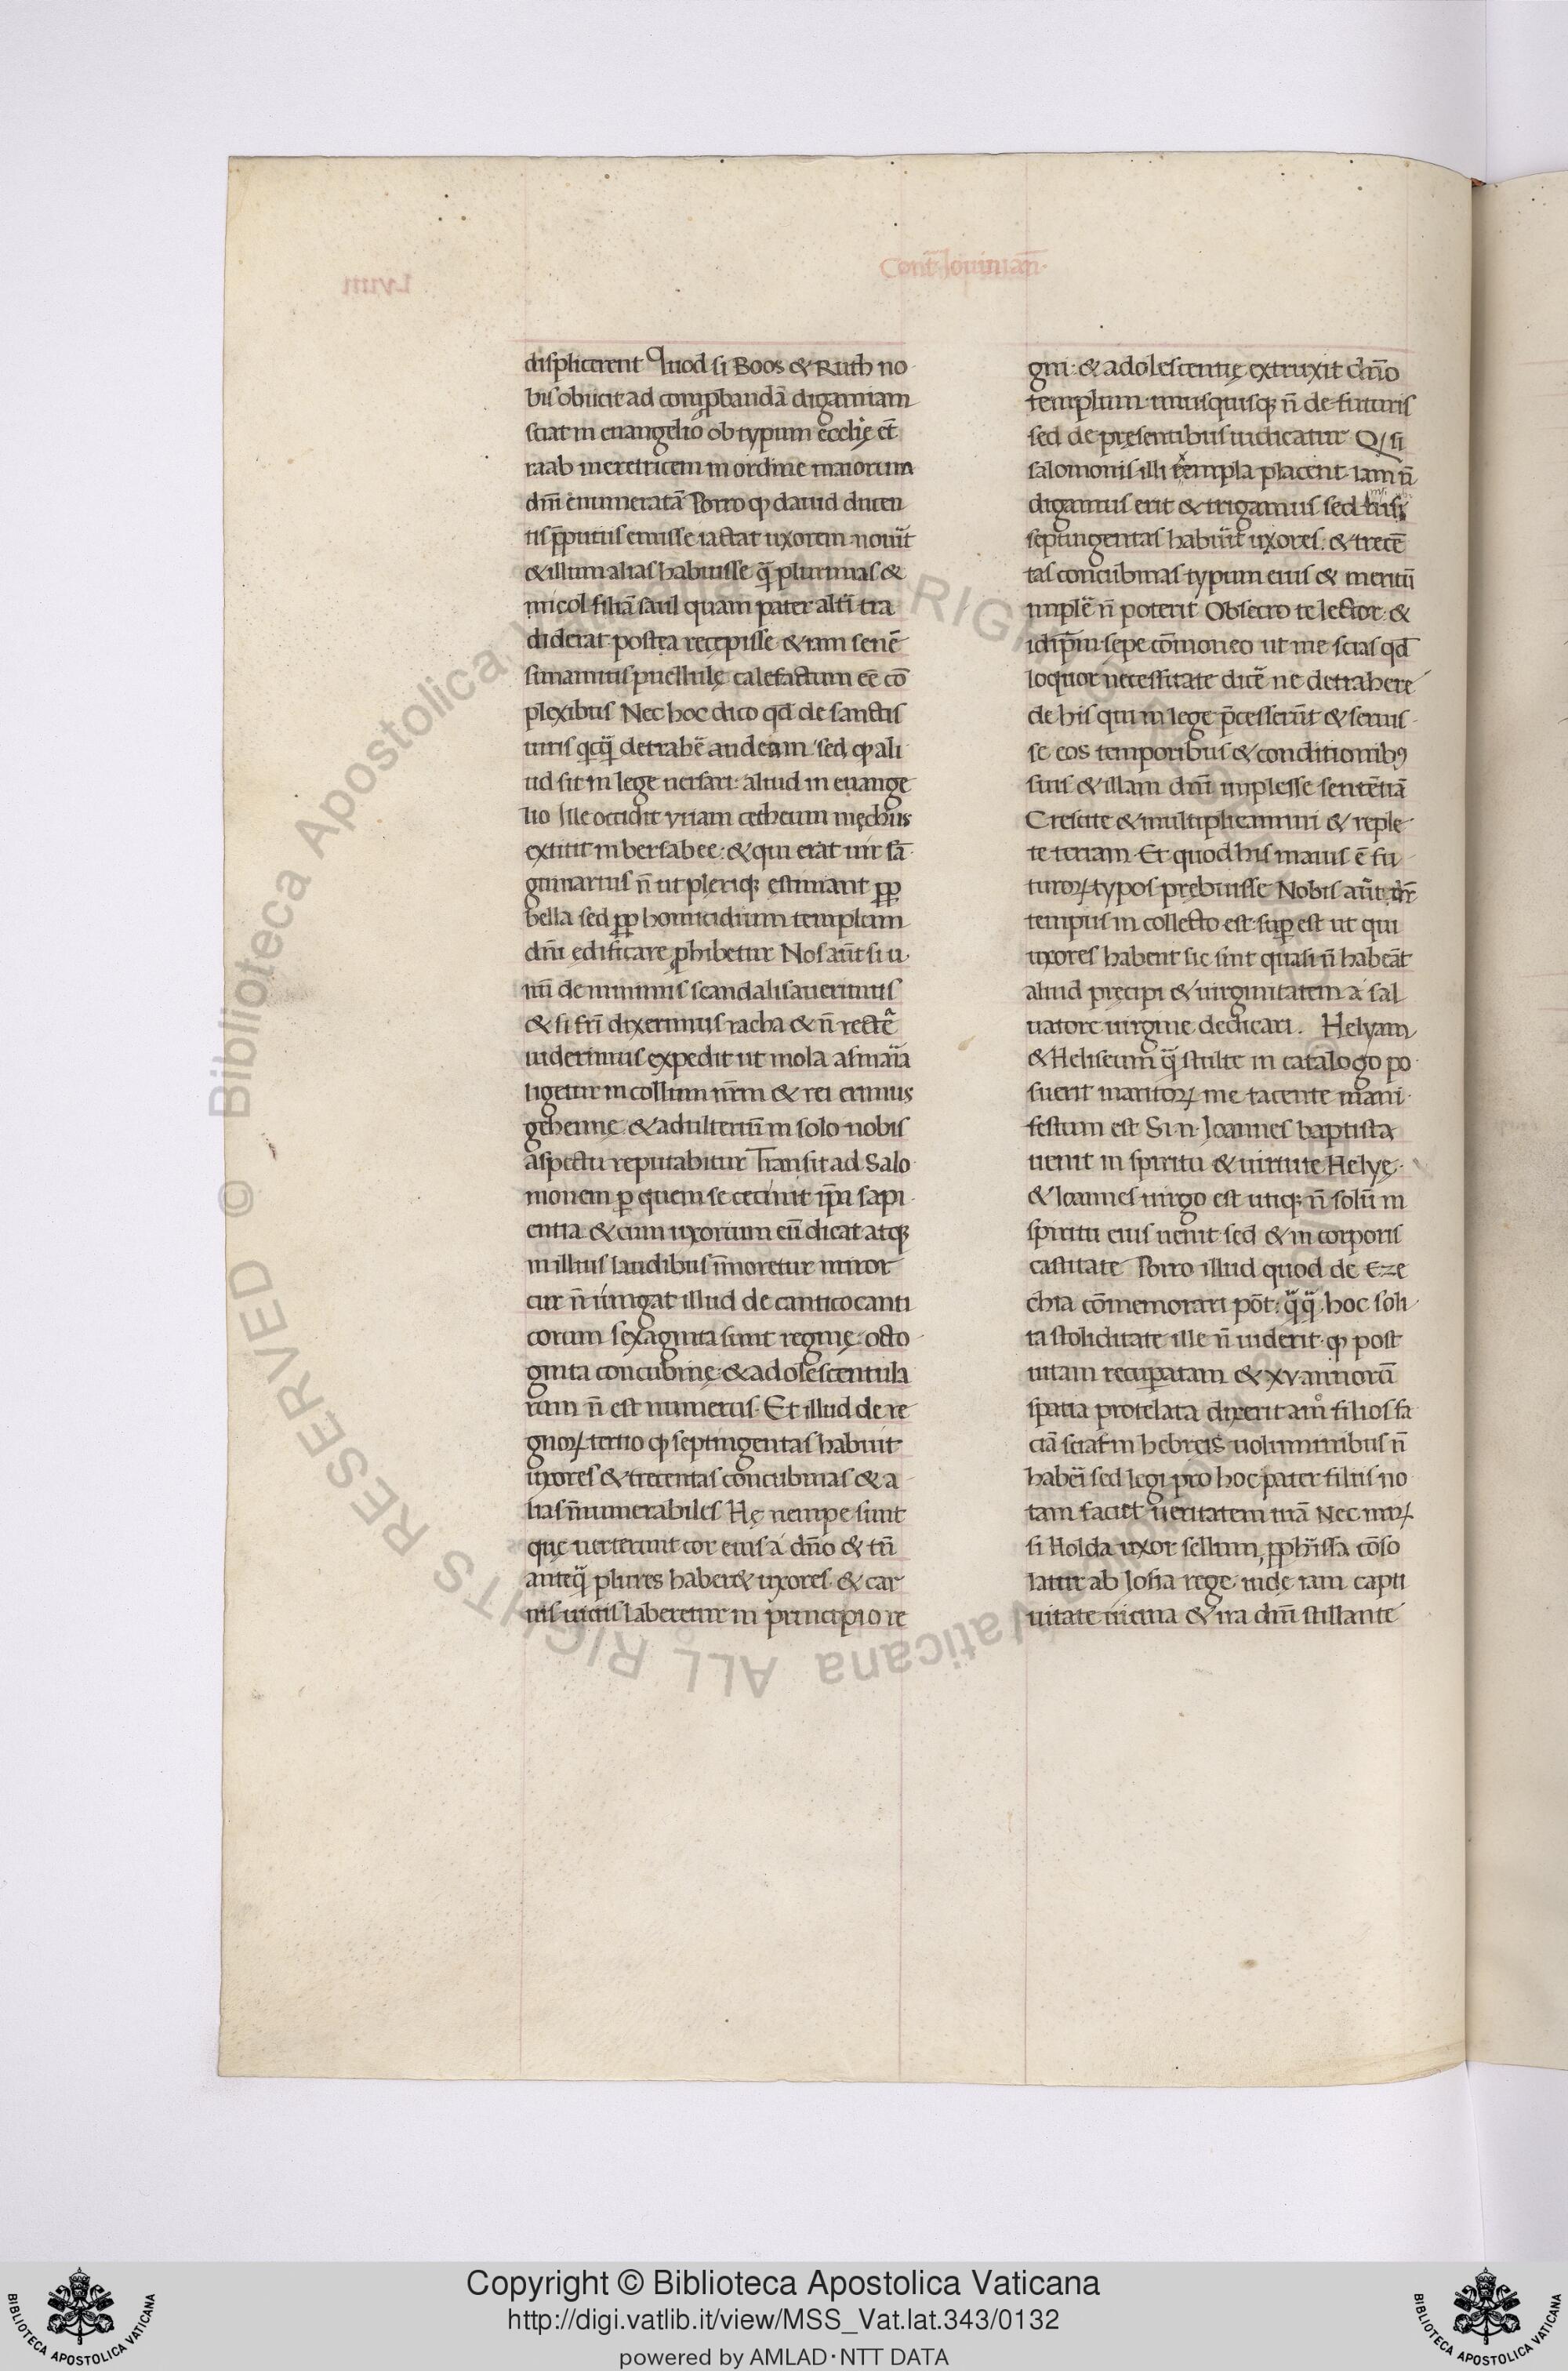 Cont̄ Iouinian̄.
displicerent Quod si Boos & Ruth no
bis obiicit ad comp̱bandā digamiam
sciat in euangelio ob typum ecclię et̄
raab meretricem in ordine maiorum
dn̄i enumeratā Porro ꝙ dauid ducen
tis p̄putiis emisse iactat uxorem nouit
& illum alias habuisse q̄ plurimas &
micol filiā saul quam pater alt̄i tra
diderat postea recepisse & iam senē
sunamitis puellulę calefactum eē cō
plexibus Nec hoc dico qd̄ de sanctis
uiris qcq̄ detrahē audeam sed ꝙ ali
ud sit in lege uersari: aliud in euange
lio Ille occidit vriam cetheum męchus
extitit in bersabee: & qui erat uir sā
guinarius n̄ ut pleriqꝫ estimant ꝓp
bella sed ꝓp homicidium templum
dn̄i edificare ꝓhibetur Nos aūt si u
nū de minimis scandalisauerimus
& si fr̄i dixerimus racha & n̄ rectē
uiderimus expedit ut mola asinaia
ligetur in collum nr̄m & rei erimus
gehennę & adulteriū in solo nobis
aspectu reputabitur Transit ad Salo
monem ꝑ quem se cecinit ip̄a sapi
entia & cum uxorium eū dicat atqꝫ
in illius laudibus īmoretur miror
cur n̄ iungat illud de cantico canti
corum sexaginta sunt reginę: octo
ginta concubinę & adolescentula
rum n̄ est numerus. Et illud de re
gnoꝝ tertio ꝙ septingentas habuit
uxores & trecentas concubinas & a
lias īnumerabiles Hę nempe sunt
quę uerterunt cor eius a dn̄o & tn̄
anteq̄ plures haber& uxores & car
nis uiciis laberetur in principio re
gni: & adolescentię extruxit dn̄o
templum unusquisqꝫ n̄ de futuris
sed de pręsentibus iudicatur Q si
salomonis illi exempla placent iam n̄
digamus erit & trigamus sed nisi
septingentas habuit uxores. & trecē
tas concubinas typum eius & meritū
implē n̄ poterit Obsecro te lector &
idip̄m sepe cōmoneo ut me scias qd̄
loquor necessitate dicē ne detrahere
de his qui in lege p̄cesserūt & seruis
se eos temporibus & conditionibꝰ
suis & illam dn̄i implesse sentētiā
Crescite & multiplicamini & reple
te terram. Et quod his maius ē fu
turoꝝ typos prębuisse Nobis aūt dr̄
tempus in collecto est suꝑ est ut qui
uxores habent sic sint quasi n̄ habeāt
aliud pręcipi & uirginitatem a sal
uatore uirgine dedicari. Helyam
& Heliseum q̄ stulte in catalogo po
suerit maritoꝝ me tacente mani
festum est Si .n. Ioannes baptista
uenit in spiritu & uirtute Helyę.
& Ioannes uirgo est utiqꝫ n̄ solū in
spiritu eius uenit sed & in corporis
castitate Porro illud quod de Eze
chia cōmemorari pōt: q̄q̄ hoc soli
ta stoliditate ille n̄ uiderit ꝙ post
uitam recuꝑatam & xv annorū
spatia protelata dixerit am̊ filios fa
ciā sciat in hebreis uoluminibus n̄
haberi sed legi pro hoc pater filiis no
tam faciet ueritatem tuā Nec miꝝ
si Holda uxor sellum, ꝓph̄issa cōso
latur ab Iosia rege inde iam capti
uitate uicina & ira dn̄i stillante
Copyright © Biblioteca Apostolica Vaticana
http://digi.vatlib.it/view/MSS_Vat.lat.343/0132
powered by AMLAD·NTT DATA